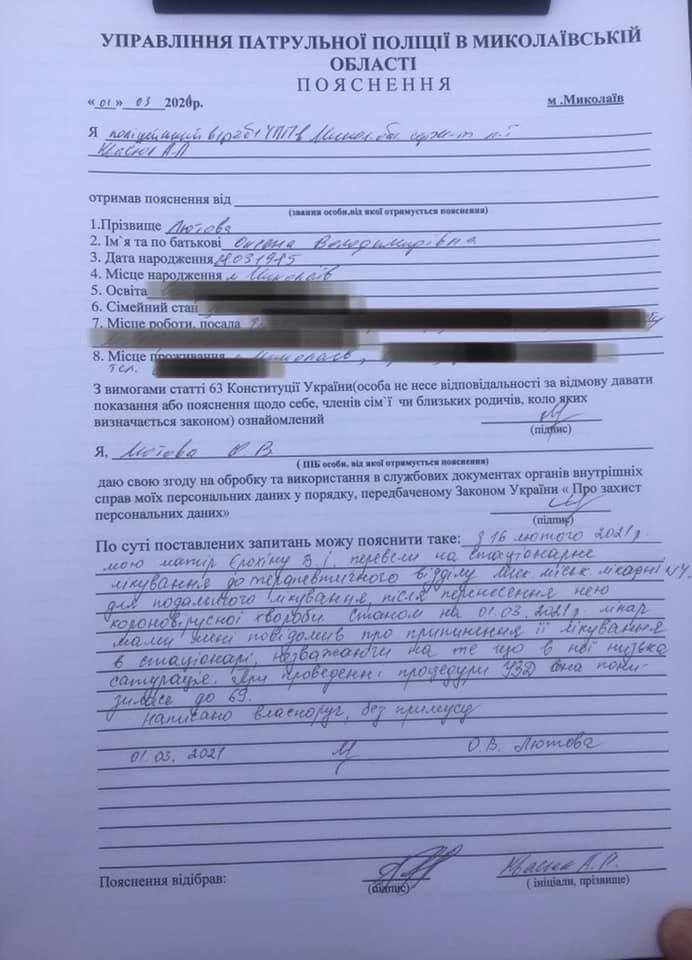 УПРАВЛІННЯ ПАТРУЛЬНОЇ ПОЛІЦІЇ В МИКОЛАЇВСЬКІЙ
ОБЛАСТІ
ПОЯСНЕННЯ
«01» 03 2021р. м .Миколаїв
Я поліцейський
отримав пояснення від
(звання особи,від якої отримується пояснення)
1.Прізвище Лютова
2. Ім`я та по батькові Оксана Володимирівна
3. Дата народження
4. Місце народження м Миколаїв
5. Освіта
6. Сімейний стан
7. Місце роботи, посада
8. Місце проживання м Миколаїв,
тел.
З вимогами статті 63 Конституції України(особа не несе відповідальності за відмову давати
показання або пояснення щодо себе, членів сім`ї чи близьких родичів, коло яких
визначається законом) ознайомлений
(підпис)
Я, Лютова О В
( ПІБ особи, від якої отримується пояснення)
даю свою згоду на обробку та використання в службових документах органів внутрішніх
справ моїх персональних даних у порядку, передбаченому Законом України « Про захист
персональних даних»
(підпис)
По суті поставлених запитань можу пояснити таке: З 16 лютого 2021р
мою матір Єрохіну В.І. перевели на стаціонарне
лікування до терапевтичного відділу Мик міськ лікарні №4
для подальшого лікування, після перенесення нею
короновірусної хвороби Станом на 01.03.2021р. лікар
мами мені повідомив про припинення її лікування
в стаціонарі, незважаючи на те що в неї низька
сатурація. При проведенні процедури УЗД вона пони-
зилась до 69.
Написано власноруч, без примусу
01.03.2021 О.В. Лютова
Пояснення відібрав:
(підпис) ( ініціали, прізвище)